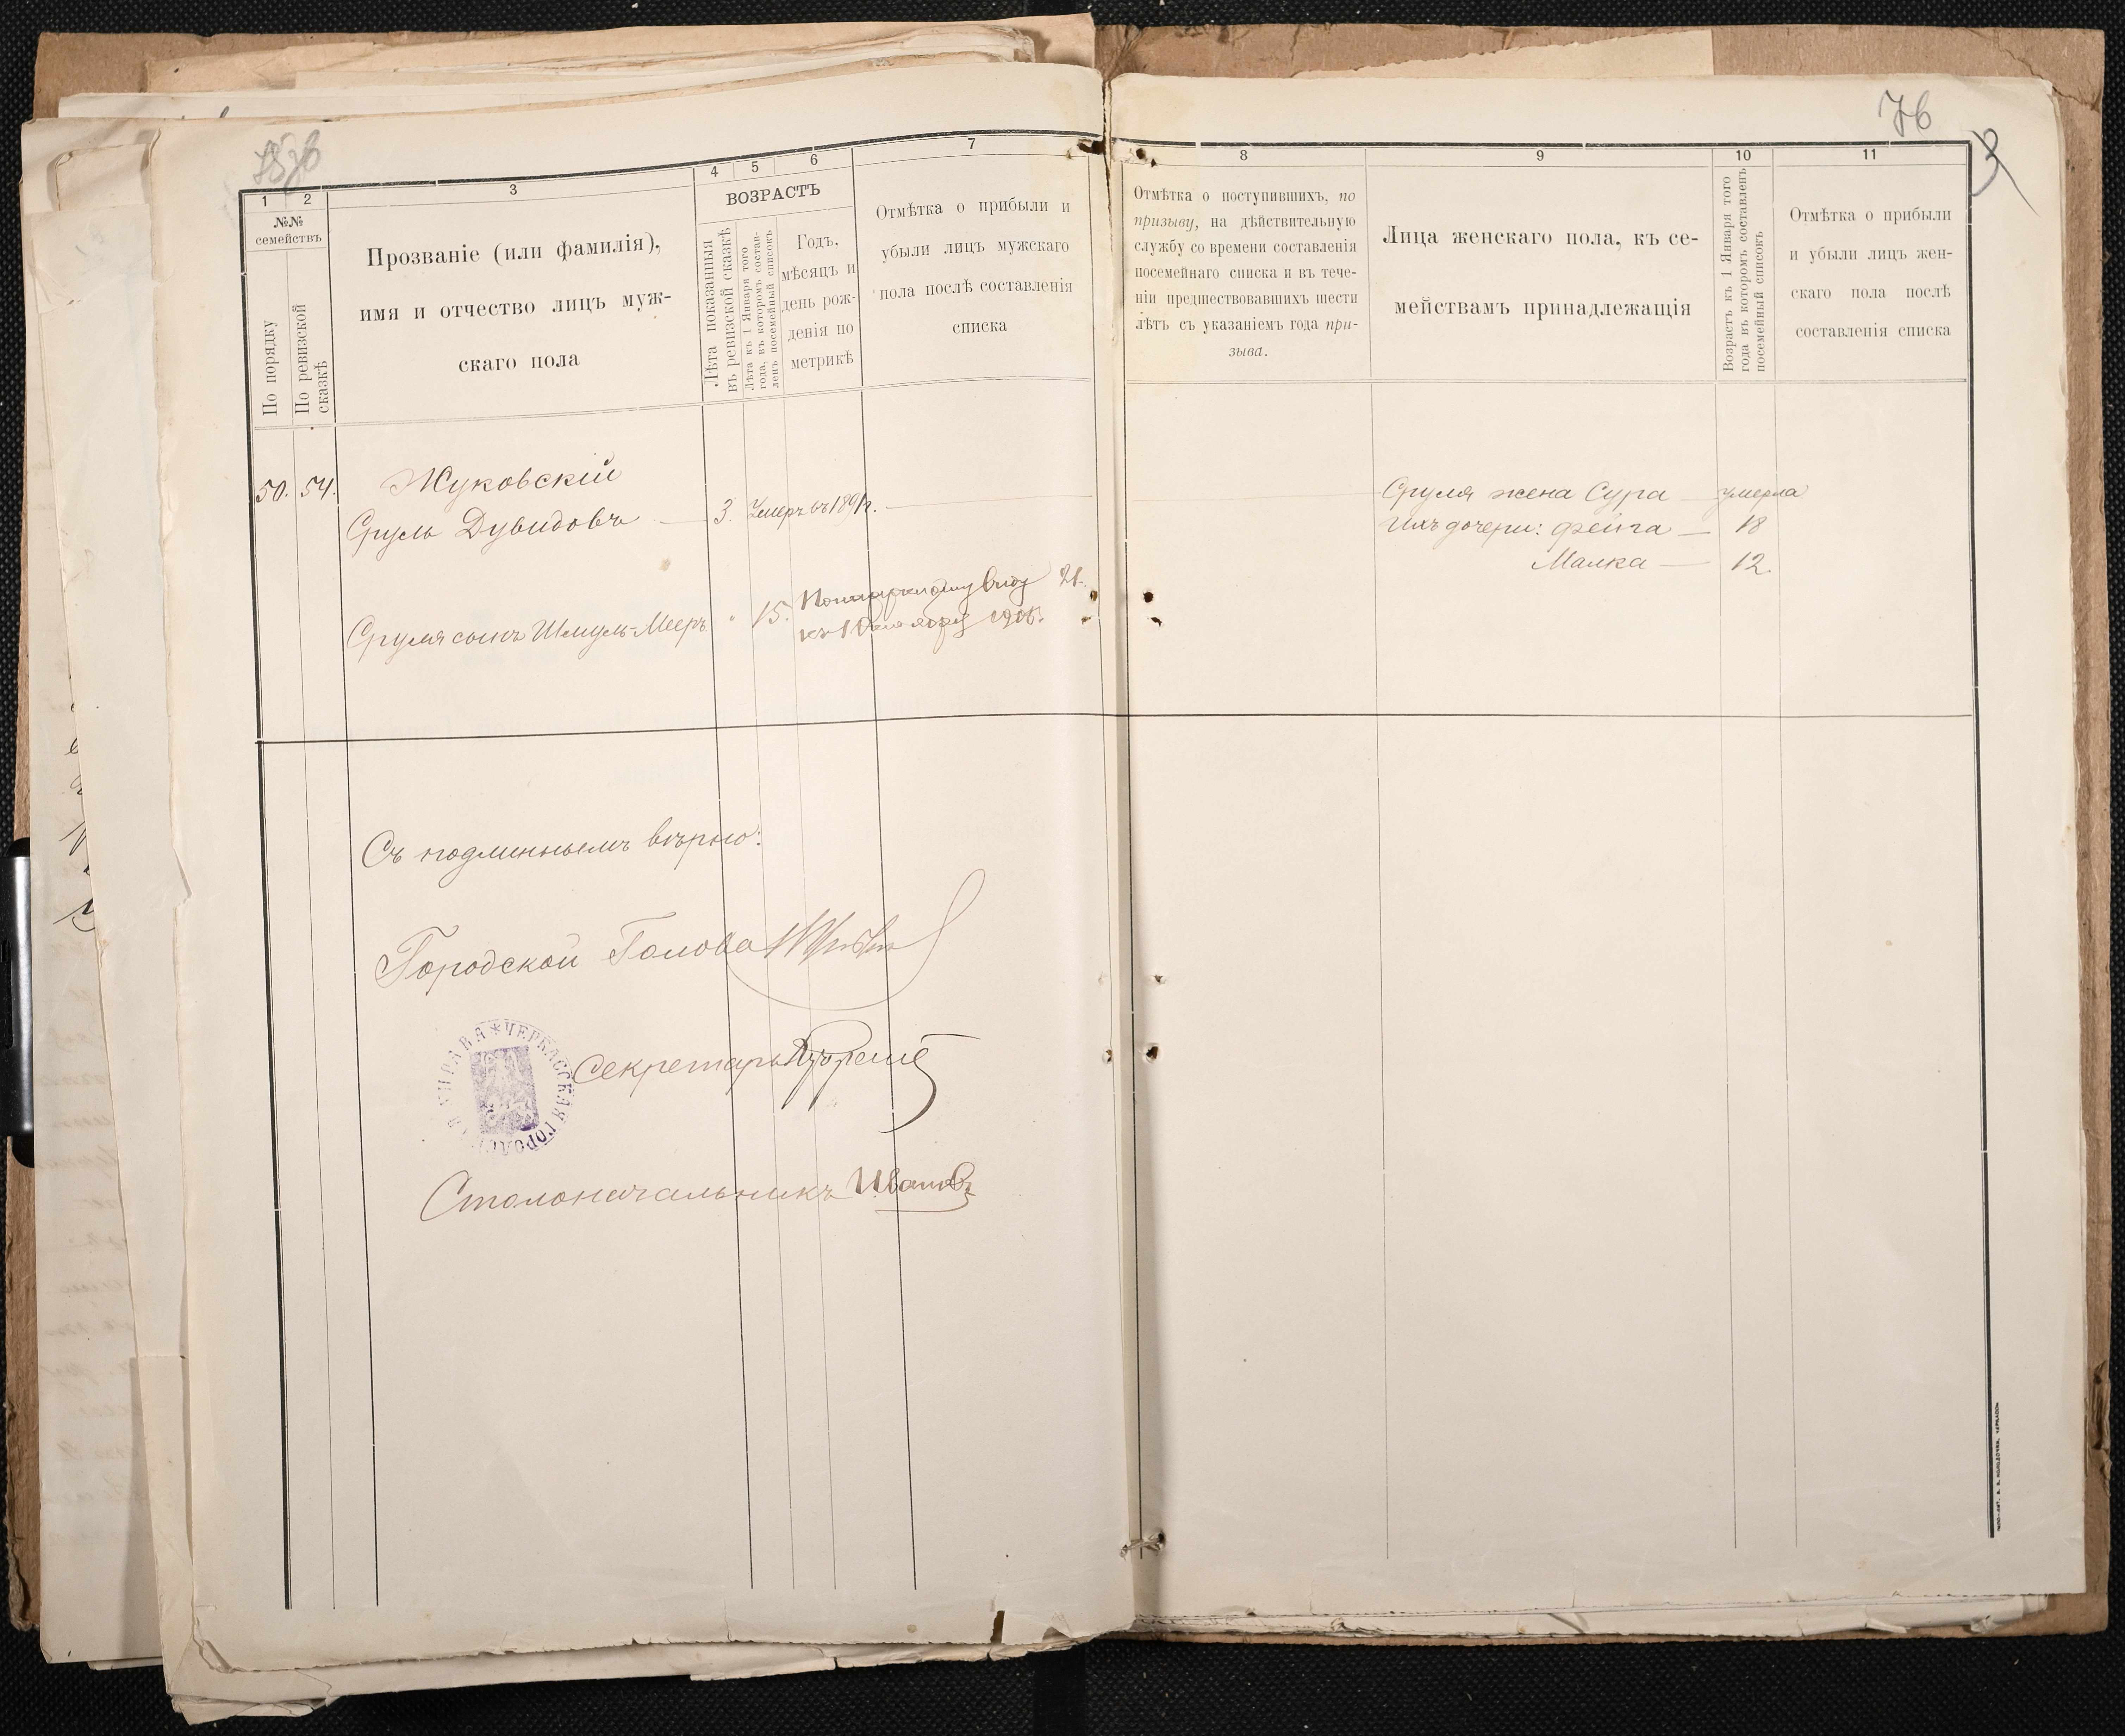 76
1
2
3
4
5
6
7
№№ семействъ
По порядку
По ревизской сказкѣ
Прозваніе (или фамилія),
имя и отчество лицъ муж-
скаго пола
ВОЗРАСТЪ
Лѣта показанныя
въ ревизской сказкѣ
Лѣта къ 1 Января того
года, въ которомъ состав-
ленъ посемейный списокъ
Годъ,
мѣсяцъ и
день рож-
денія по
метрикѣ
Отмѣтка о прибыли и
убыли лицъ мужскаго
пола послѣ составленія
списка
8
9
10
11
Отмѣтка о поступившихъ, по
призыву, на дѣйствительную
службу со времени составленія
посемейнаго списка и въ тече-
ніи предшествовавшихъ шести
лѣтъ съ указаніемъ года при-
зыва.
Лица женскаго пола, къ се-
мействамъ принадлежащія
Возрастъ къ 1 Января того
года въ которомъ составленъ
посемейный списокъ
Отмѣтка о прибыли
и убыли лицъ жен-
скаго пола послѣ
составленія списка
50. 54. Жуковскій
Сруль Дувидовъ — 3. Умеръ въ 1891 г.
Сруля сынъ Шмуль-Мееръ " 15. виду 21.
къ 1 1906.
Сруля жена Сура — умерла
Ихъ дочери: Фейга — 18
Малка — 12.
Съ подлиннымъ вѣрно:
Городской Голова
Секретарь
Столоначальникъ Иванов
* ЧЕРКАССКАЯ ГОРОДСКАЯ УПРАВА